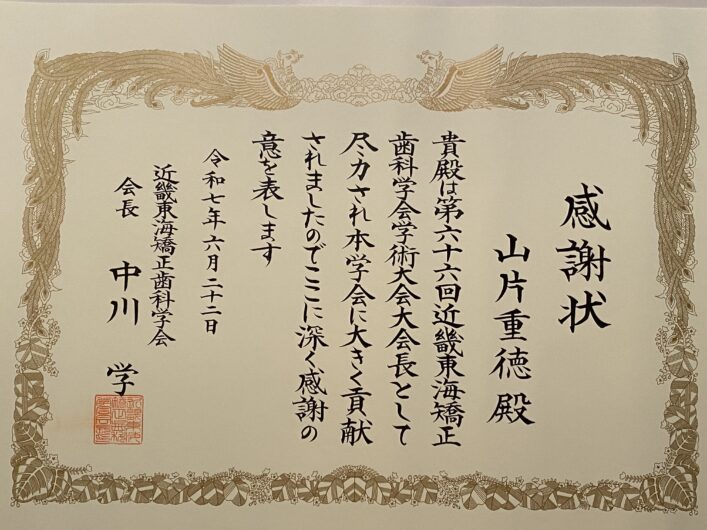 感謝状
山片重徳殿
貴殿は第六十六回近畿東海矯正
歯科学会学術大会大会長として
尽力され本学会に大きく貢献
されましたのでここに深く感謝の
意を表します
令和七年六月二十二日
近畿東海矯正歯科学会
会長 中川 学